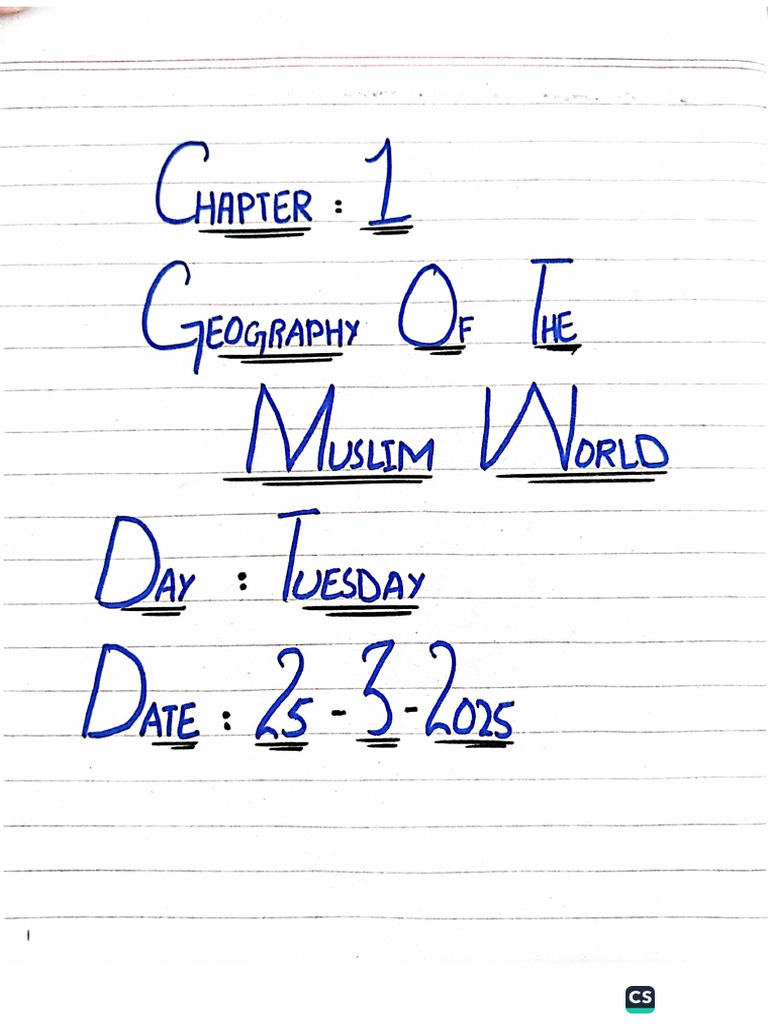 CHAPTER : 1
GEOGRAPHY OF THE
MUSLIM WORLD
DAY : TUESDAY
DATE : 25 - 3 - 2025
CS